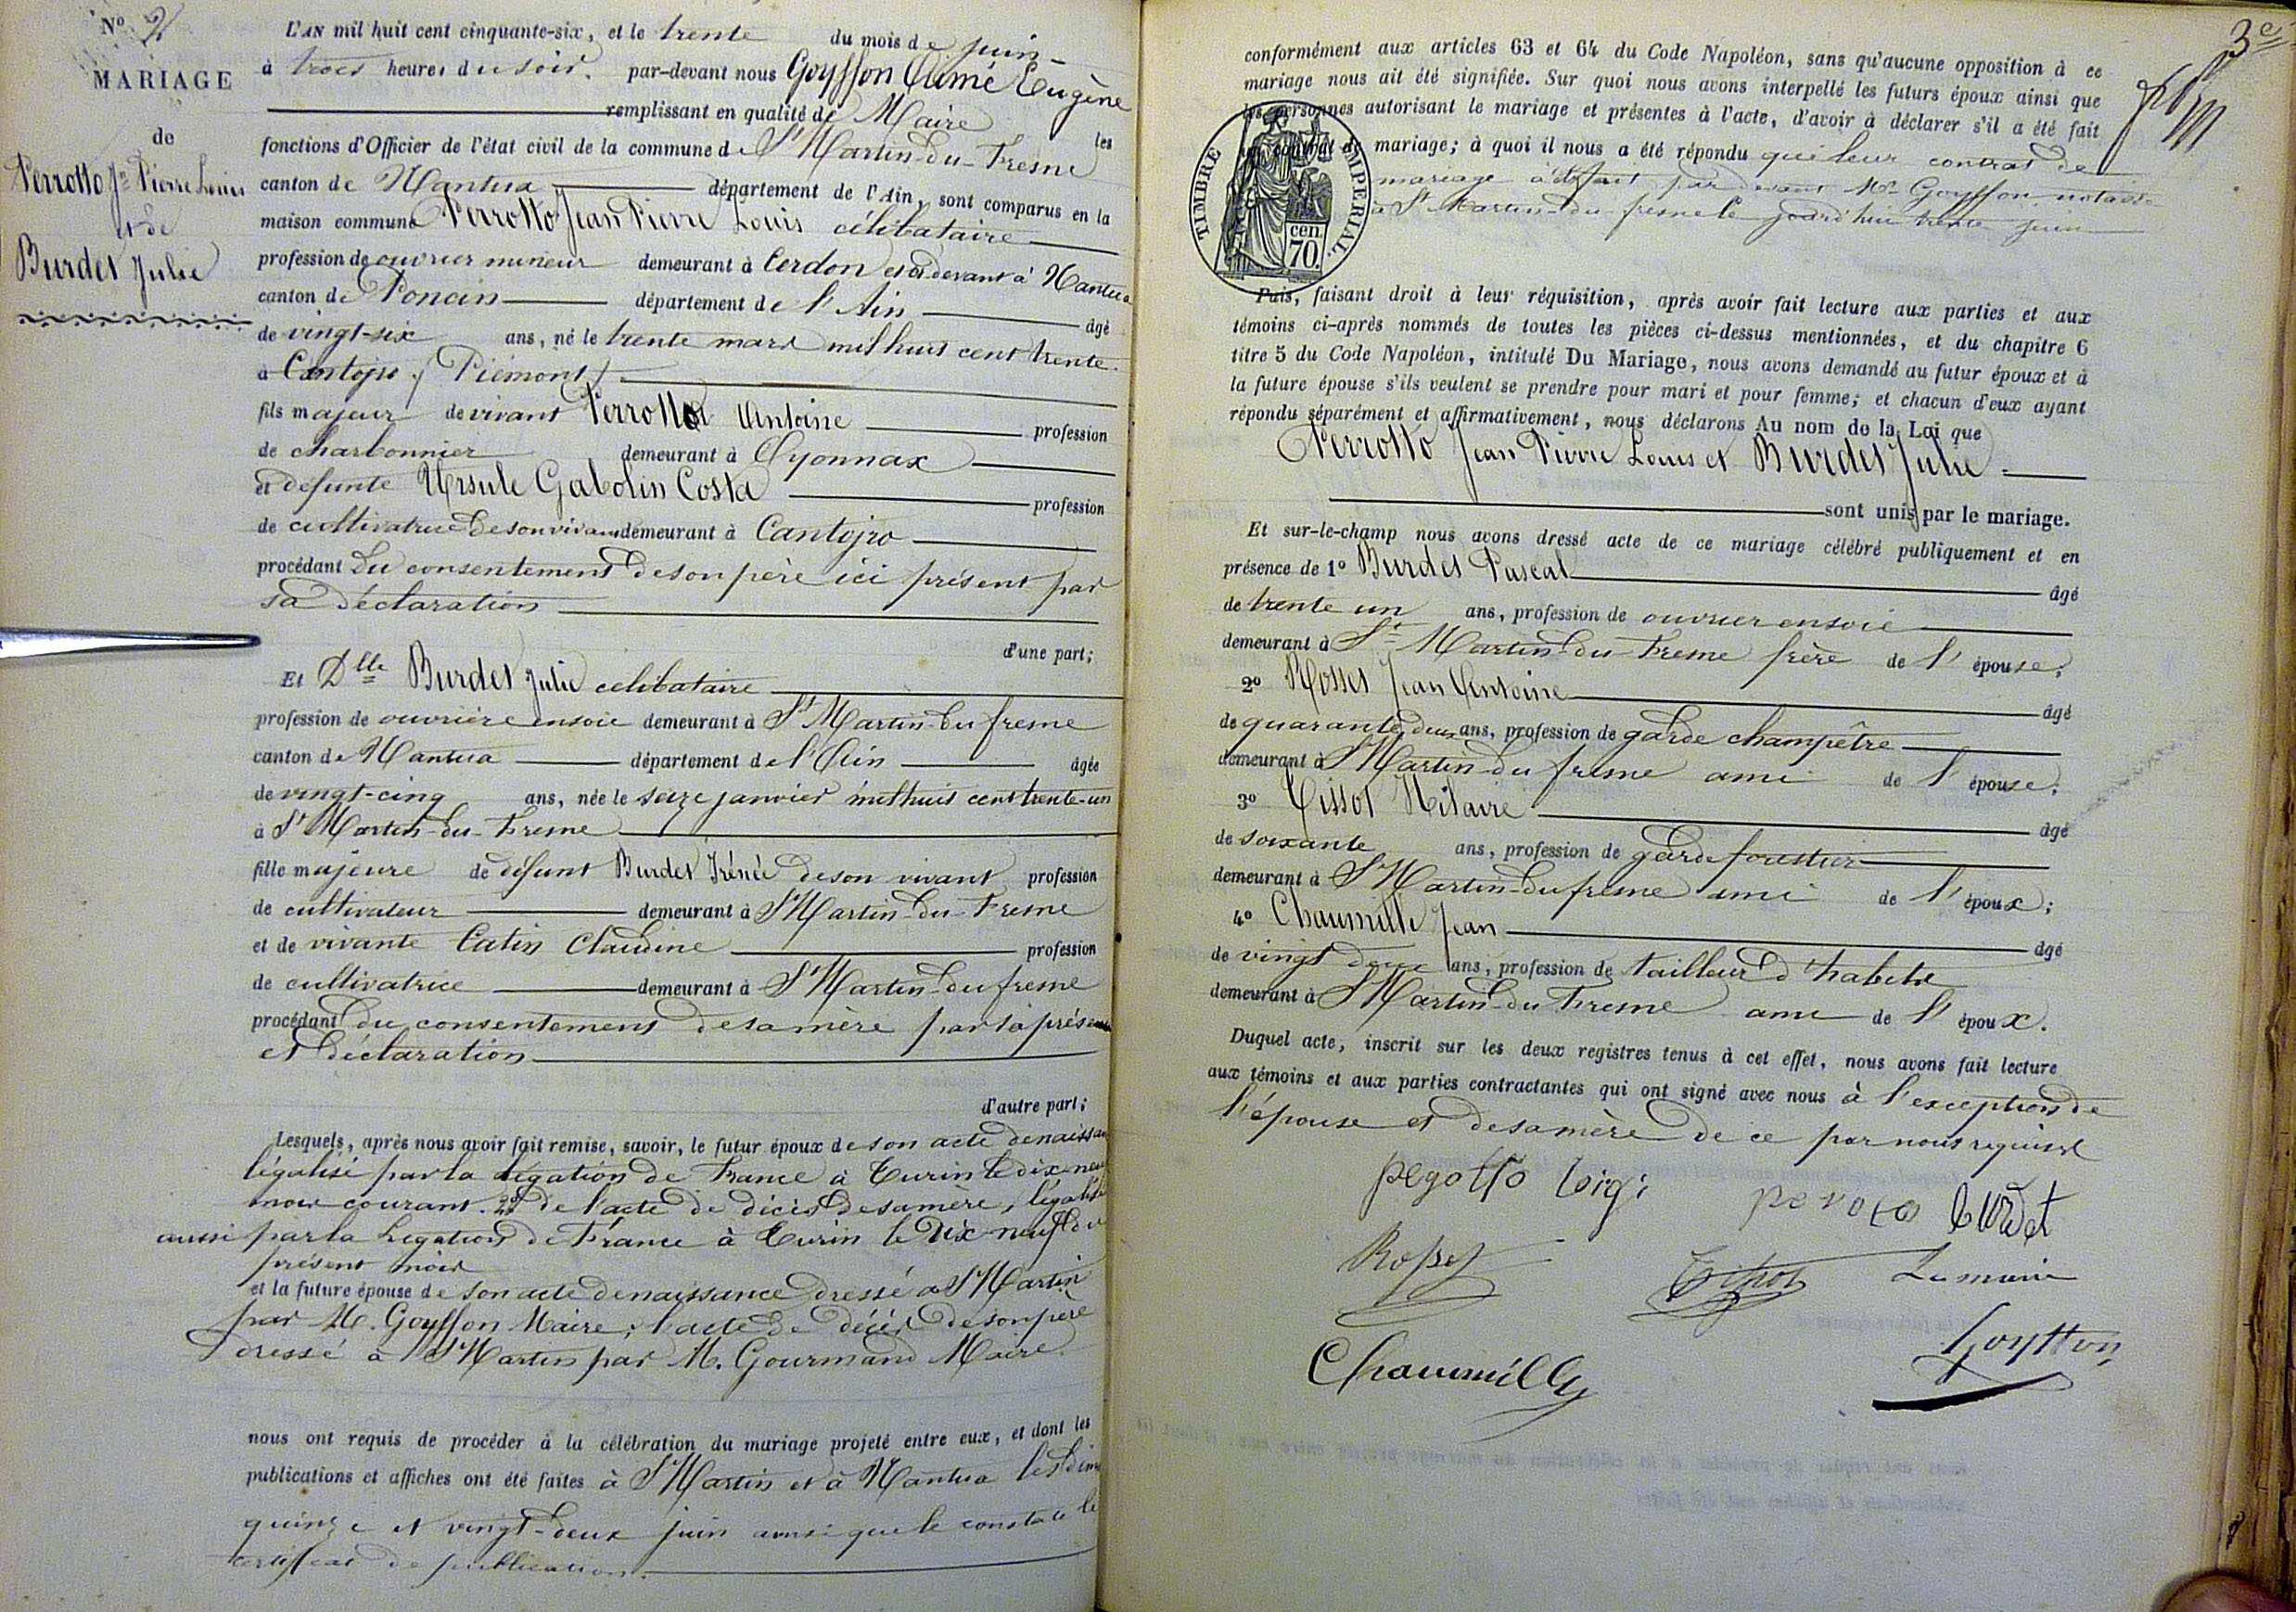 N° 2
MARIAGE
de
Perrotto Jn Pierre Louis
et de
Burdet Julie
L'AN mil huit cent cinquante-six, et le trente du mois de juin
à trois heures du soir. par-devant nous Goyffon Aimé Eugène
remplissant en qualité de Maire les
fonctions d'Officier de l'état civil de la commune de St Martin-du-Fresne
canton de Nantua département de l'Ain, sont comparus en la
maison commune Perrotto Jean Pierre Louis célibataire
profession de ouvrier mineur demeurant à Cerdon et ci devant à Nantua
canton de Poncin département de l'Ain âgé
de vingt-six ans, né le trente mars mil huit cent trente
à Cantojro (Piémont)
fils majeur de vivant Perrotto Antoine profession
de charbonnier demeurant à Oyonnax
et défunte Ursule Gabolin Costa profession
de cultivatrice de son vivant demeurant à Cantojro
procédant du consentement de son père ici présent par
sa déclaration
d'une part;
Et Dlle Burdet Julie célibataire
profession de ouvrière en soie demeurant à St Martin-du fresne
canton de Nantua département de l'Ain âgée
de vingt-cinq ans, née le seize janvier mil huit cent trente-un
à St Martin-du-Fresne
fille majeure de défunt Burdet Irénée de son vivant profession
de cultivateur demeurant à St Martin-du-Fresne
et de vivante Catin Claudine profession
de cultivatrice demeurant à St Martin-du fresne
procédant du consentement de sa mère par sa présence
et déclaration
d'autre part;
Lesquels, après nous avoir fait remise, savoir, le futur époux de son acte de naissan
légalisé par la légation de France à Turin le dix-neuf
mois courant. 2° de l'acte de décès de sa mère, légalisé
aussi par la Légation de France à Turin le dix-neuf du
présent mois
et la future épouse de son acte de naissance dressé à St Martin
par M. Goyffon Maire; l'acte de décès de son père
dressé à St Martin par M. Gourmand Maire.
nous ont requis de procéder à la célébration du mariage projeté entre eux, et dont les
publications et affiches ont été faites à St Martin et à Nantua les dim
quinze et vingt-deux juin ainsi que le constate le
certificat de publication.
3e
conformément aux articles 63 et 64 du Code Napoléon, sans qu'aucune opposition à ce
mariage nous ait été signifiée. Sur quoi nous avons interpellé les futurs époux ainsi que
les personnes autorisant le mariage et présentes à l'acte, d'avoir à déclarer s'il a été fait
un contrat de mariage; à quoi il nous a été répondu que leur contrat de
mariage a été fait par devant Me Goyffon notaire
à St Martin-du fresne le jourd'hui trente juin
TIMBRE IMPERIAL
cen.
70.
Puis, faisant droit à leur réquisition, après avoir fait lecture aux parties et aux
témoins ci-après nommés de toutes les pièces ci-dessus mentionnées, et du chapitre 6
titre 5 du Code Napoléon, intitulé Du Mariage, nous avons demandé au futur époux et à
la future épouse s'ils veulent se prendre pour mari et pour femme; et chacun d'eux ayant
répondu séparément et affirmativement, nous déclarons Au nom de la Loi que
Perrotto Jean Pierre Louis et Burdet Julie
sont unis par le mariage.
Et sur-le-champ nous avons dressé acte de ce mariage célébré publiquement et en
présence de 1° Burdet Pascal âgé
de trente un ans, profession de ouvrier en soie
demeurant à St Martin-du-Fresne frère de l'épouse;
2° Rosset Jean Antoine âgé
de quarante deux ans, profession de garde champêtre
demeurant à St Martin-du fresne ami de l'épouse;
3° Tissot Hilaire âgé
de soixante ans, profession de garde forestier
demeurant à St Martin-du fresne ami de l'époux;
4° Chaumille Jean âgé
de vingt deux ans, profession de tailleur d'habits
demeurant à St Martin-du Fresne ami de l'époux.
Duquel acte, inscrit sur les deux registres tenus à cet effet, nous avons fait lecture
aux témoins et aux parties contractantes qui ont signé avec nous à l'exception de
l'épouse et de sa mère de ce par nous requises
pegotto loigi peroto burdet
Rosset Tissot Le maire
Chaumilly Goyffon